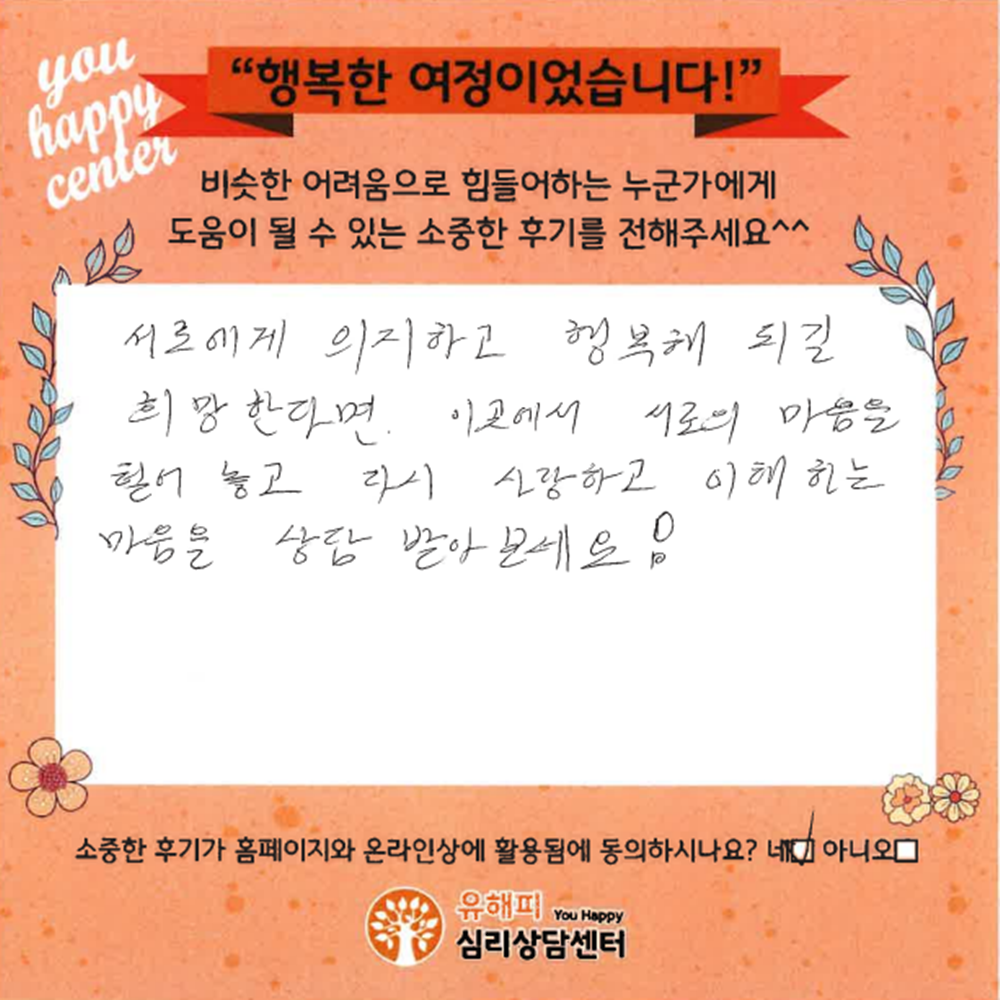 you
happy
center
“행복한 여정이었습니다!”
비슷한 어려움으로 힘들어하는 누군가에게
도움이 될 수 있는 소중한 후기를 전해주세요^^
서로에게 의지하고 행복해 되길
희망한다면. 이곳에서 서로의 마음을
털어 놓고 다시 사랑하고 이해하는
마음을 상담 받아보세요!
소중한 후기가 홈페이지와 온라인상에 활용됨에 동의하시나요? 네 아니오
유해피 You Happy
심리상담센터